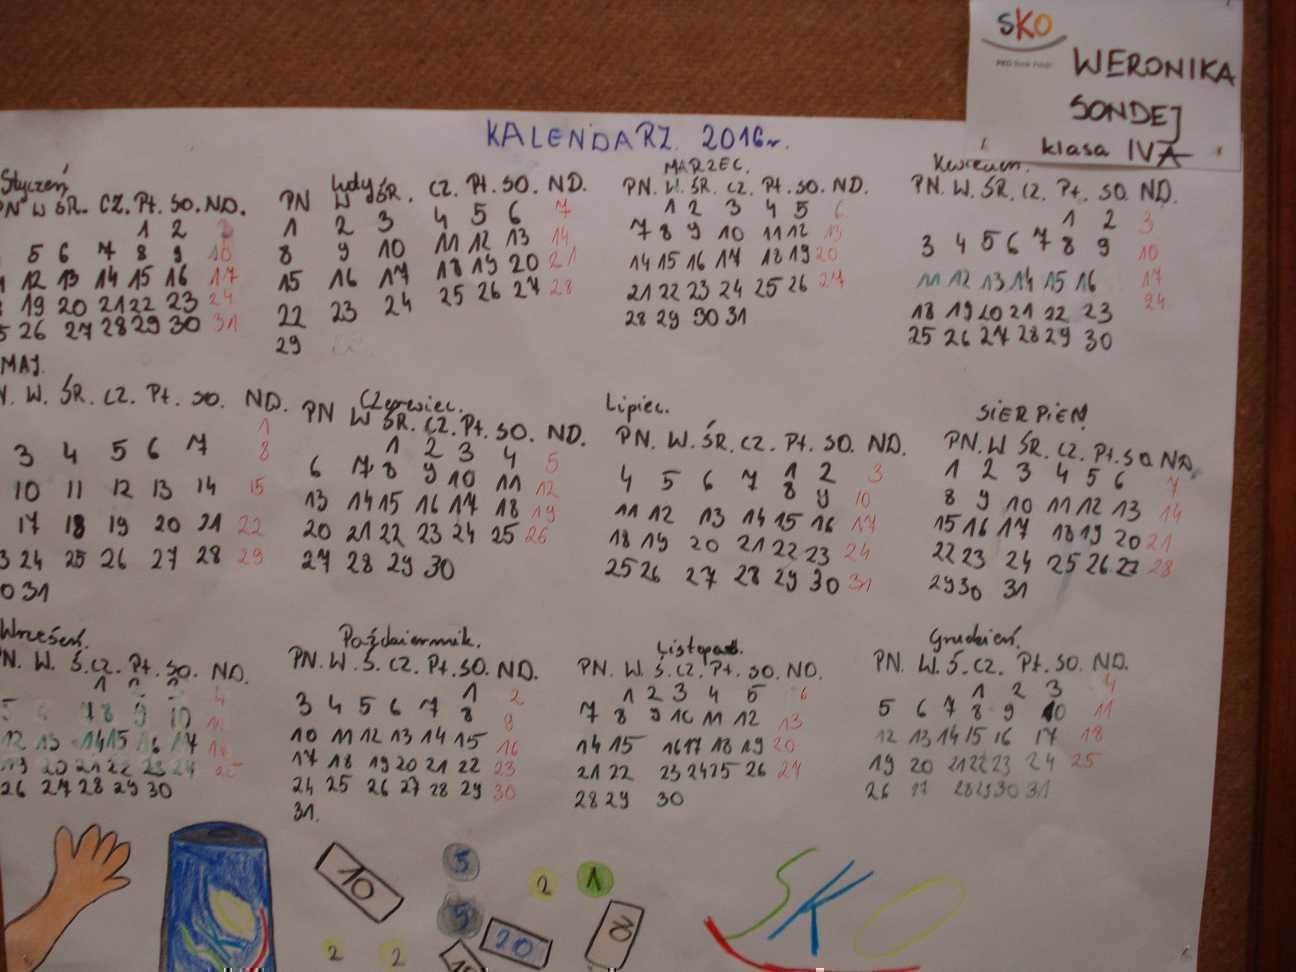 SKO
PKO Bank Polski
WERONIKA
SONDEJ
klasa IVA
KALENDARZ 2016r.
Styczeń
PN W ŚR. CZ. Pt. SO. ND.
1 2 3
5 6 7 8 9 10
12 13 14 15 16 17
19 20 21 22 23 24
26 27 28 29 30 31
Luty
PN W ŚR. CZ. Pt. SO. ND.
1 2 3 4 5 6 7
8 9 10 11 12 13 14
15 16 17 18 19 20 21
22 23 24 25 26 27 28
29
MARZEC.
PN. W. ŚR. CZ. Pt. SO. ND.
1 2 3 4 5 6
7 8 9 10 11 12 13
14 15 16 17 18 19 20
21 22 23 24 25 26 27
28 29 30 31
Kwiecień.
PN. W. ŚR. CZ. Pt. SO. ND.
1 2 3
3 4 5 6 7 8 9 10
11 12 13 14 15 16 17
18 19 20 21 22 23 24
25 26 27 28 29 30
MAJ.
W. ŚR. CZ. Pt. SO. ND.
1
3 4 5 6 7 8
10 11 12 13 14 15
17 18 19 20 21 22
24 25 26 27 28 29
31
Czerwiec.
PN W ŚR. CZ. Pt. SO. ND.
1 2 3 4 5
6 7 8 9 10 11 12
13 14 15 16 17 18 19
20 21 22 23 24 25 26
27 28 29 30
Lipiec.
PN. W. ŚR. CZ. Pt. SO. ND.
1 2 3
4 5 6 7 8 9 10
11 12 13 14 15 16 17
18 19 20 21 22 23 24
25 26 27 28 29 30 31
SIERPIEŃ
PN. W ŚR. CZ. Pt. SO ND.
1 2 3 4 5 6 7
8 9 10 11 12 13 14
15 16 17 18 19 20 21
22 23 24 25 26 27 28
29 30 31
Wrzesień.
PN. W. Ś. CZ. Pt. SO. ND.
1 2 3 4
5 6 7 8 9 10 11
12 13 14 15 16 17 18
19 20 21 22 23 24 25
26 27 28 29 30
Październik.
PN. W. Ś. CZ. Pt. SO. ND.
1 2
3 4 5 6 7 8 9
10 11 12 13 14 15 16
17 18 19 20 21 22 23
24 25 26 27 28 29 30
31.
Listopad.
PN. W. Ś. CZ. Pt. SO. ND.
1 2 3 4 5 6
7 8 9 10 11 12 13
14 15 16 17 18 19 20
21 22 23 24 25 26 27
28 29 30
Grudzień.
PN. W. Ś. CZ. Pt. SO. ND.
1 2 3 4
5 6 7 8 9 10 11
12 13 14 15 16 17 18
19 20 21 22 23 24 25
26 27 28 29 30 31
SKO
10
5
5
2
1
20
10
2
2
10
SKO